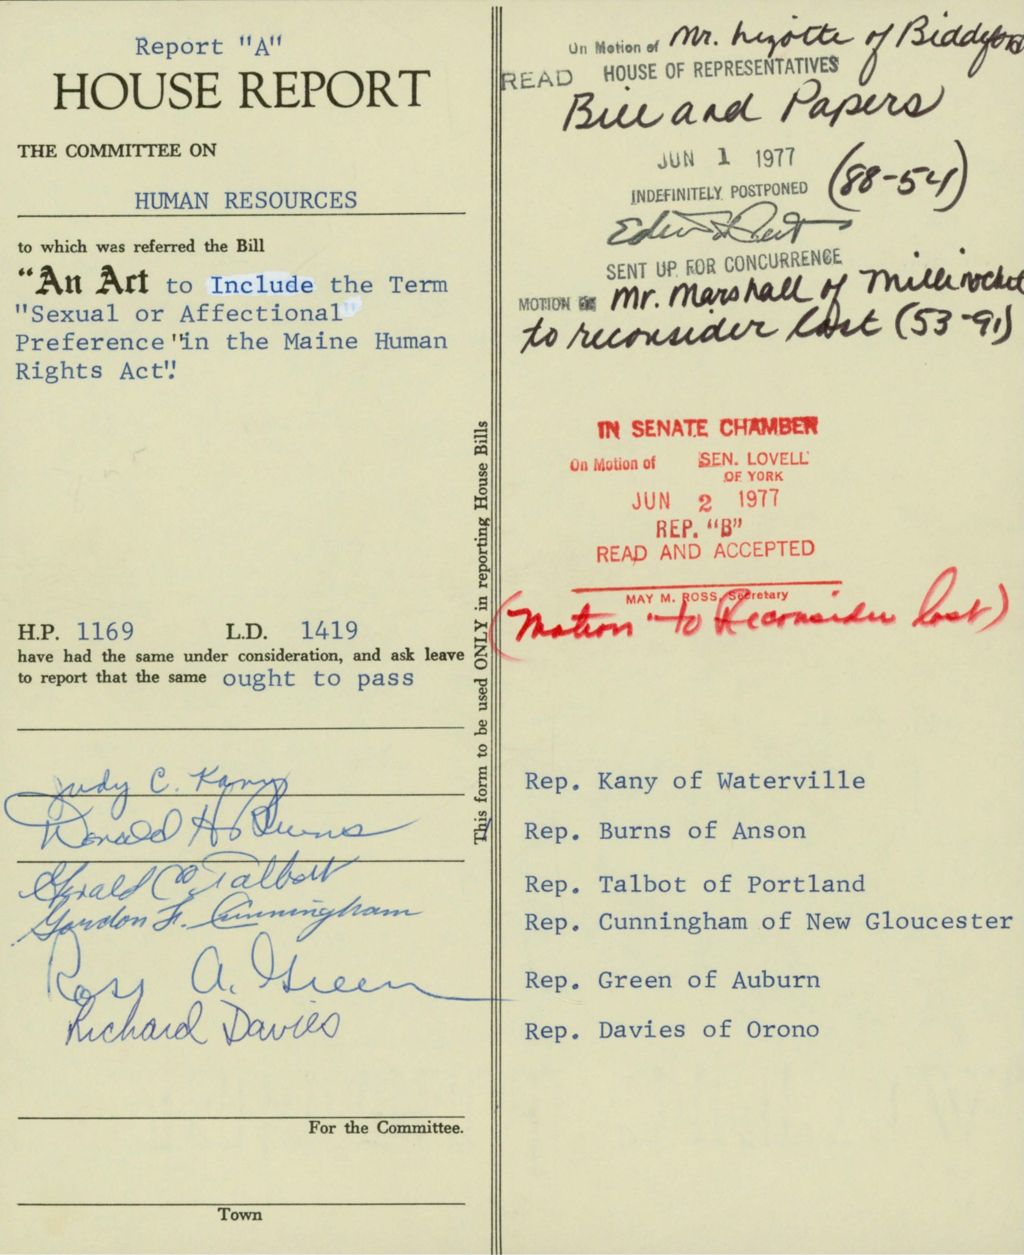 Report "A"
HOUSE REPORT
THE COMMITTEE ON
HUMAN RESOURCES
to which was referred the Bill
"An Act to Include the Term
"Sexual or Affectional"
Preference "in the Maine Human
Rights Act".
H.P. 1169 L.D. 1419
have had the same under consideration, and ask leave
to report that the same ought to pass
Judy C. Kany
Donald H. Burns
Gerald C. Talbot
Gordon F. Cunningham
Ross A. Green
Richard Davies
For the Committee.
Town
This form to be used ONLY in reporting House Bills
On Motion of Mr. Lizotte of Biddeford
READ HOUSE OF REPRESENTATIVES
Bill and Papers
JUN 1 1977
INDEFINITELY POSTPONED (88-54)
SENT UP FOR CONCURRENCE
MOTION Mr. Marshall of Millinocket
to reconsider lost (53-91)
IN SENATE CHAMBER
On Motion of SEN. LOVELL
OF YORK
JUN 2 1977
REP. "B"
READ AND ACCEPTED
MAY M. ROSS, Secretary
(Motion to Reconsider lost)
Rep. Kany of Waterville
Rep. Burns of Anson
Rep. Talbot of Portland
Rep. Cunningham of New Gloucester
Rep. Green of Auburn
Rep. Davies of Orono